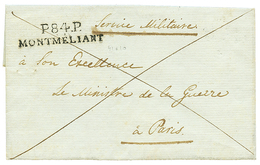 Service Militaire
P.84.P.
MONTMÉLIANT
à Son Excellence
Le Ministre de la Guerre
à Paris.